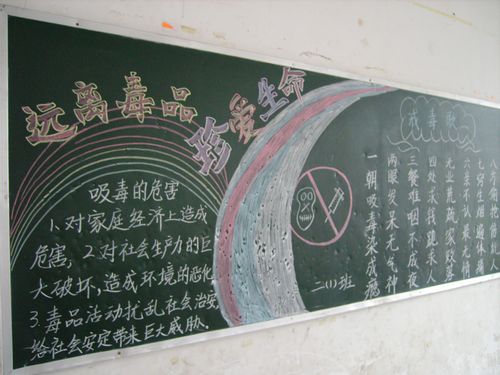 远离毒品
珍爱生命
吸毒的危害
1、对家庭经济上造成
危害，2、对社会生产力的巨
大破坏，造成环境的恶化
3.毒品活动扰乱社会治安，
给社会安定带来巨大威胁.
二(1)班
戒毒歌
一朝吸毒染成瘾
两眼发呆无气神
三餐难咽不成夜
四处求钱跪求人
无业荒疏家败落
六亲不认最无情
七窍生烟遍体